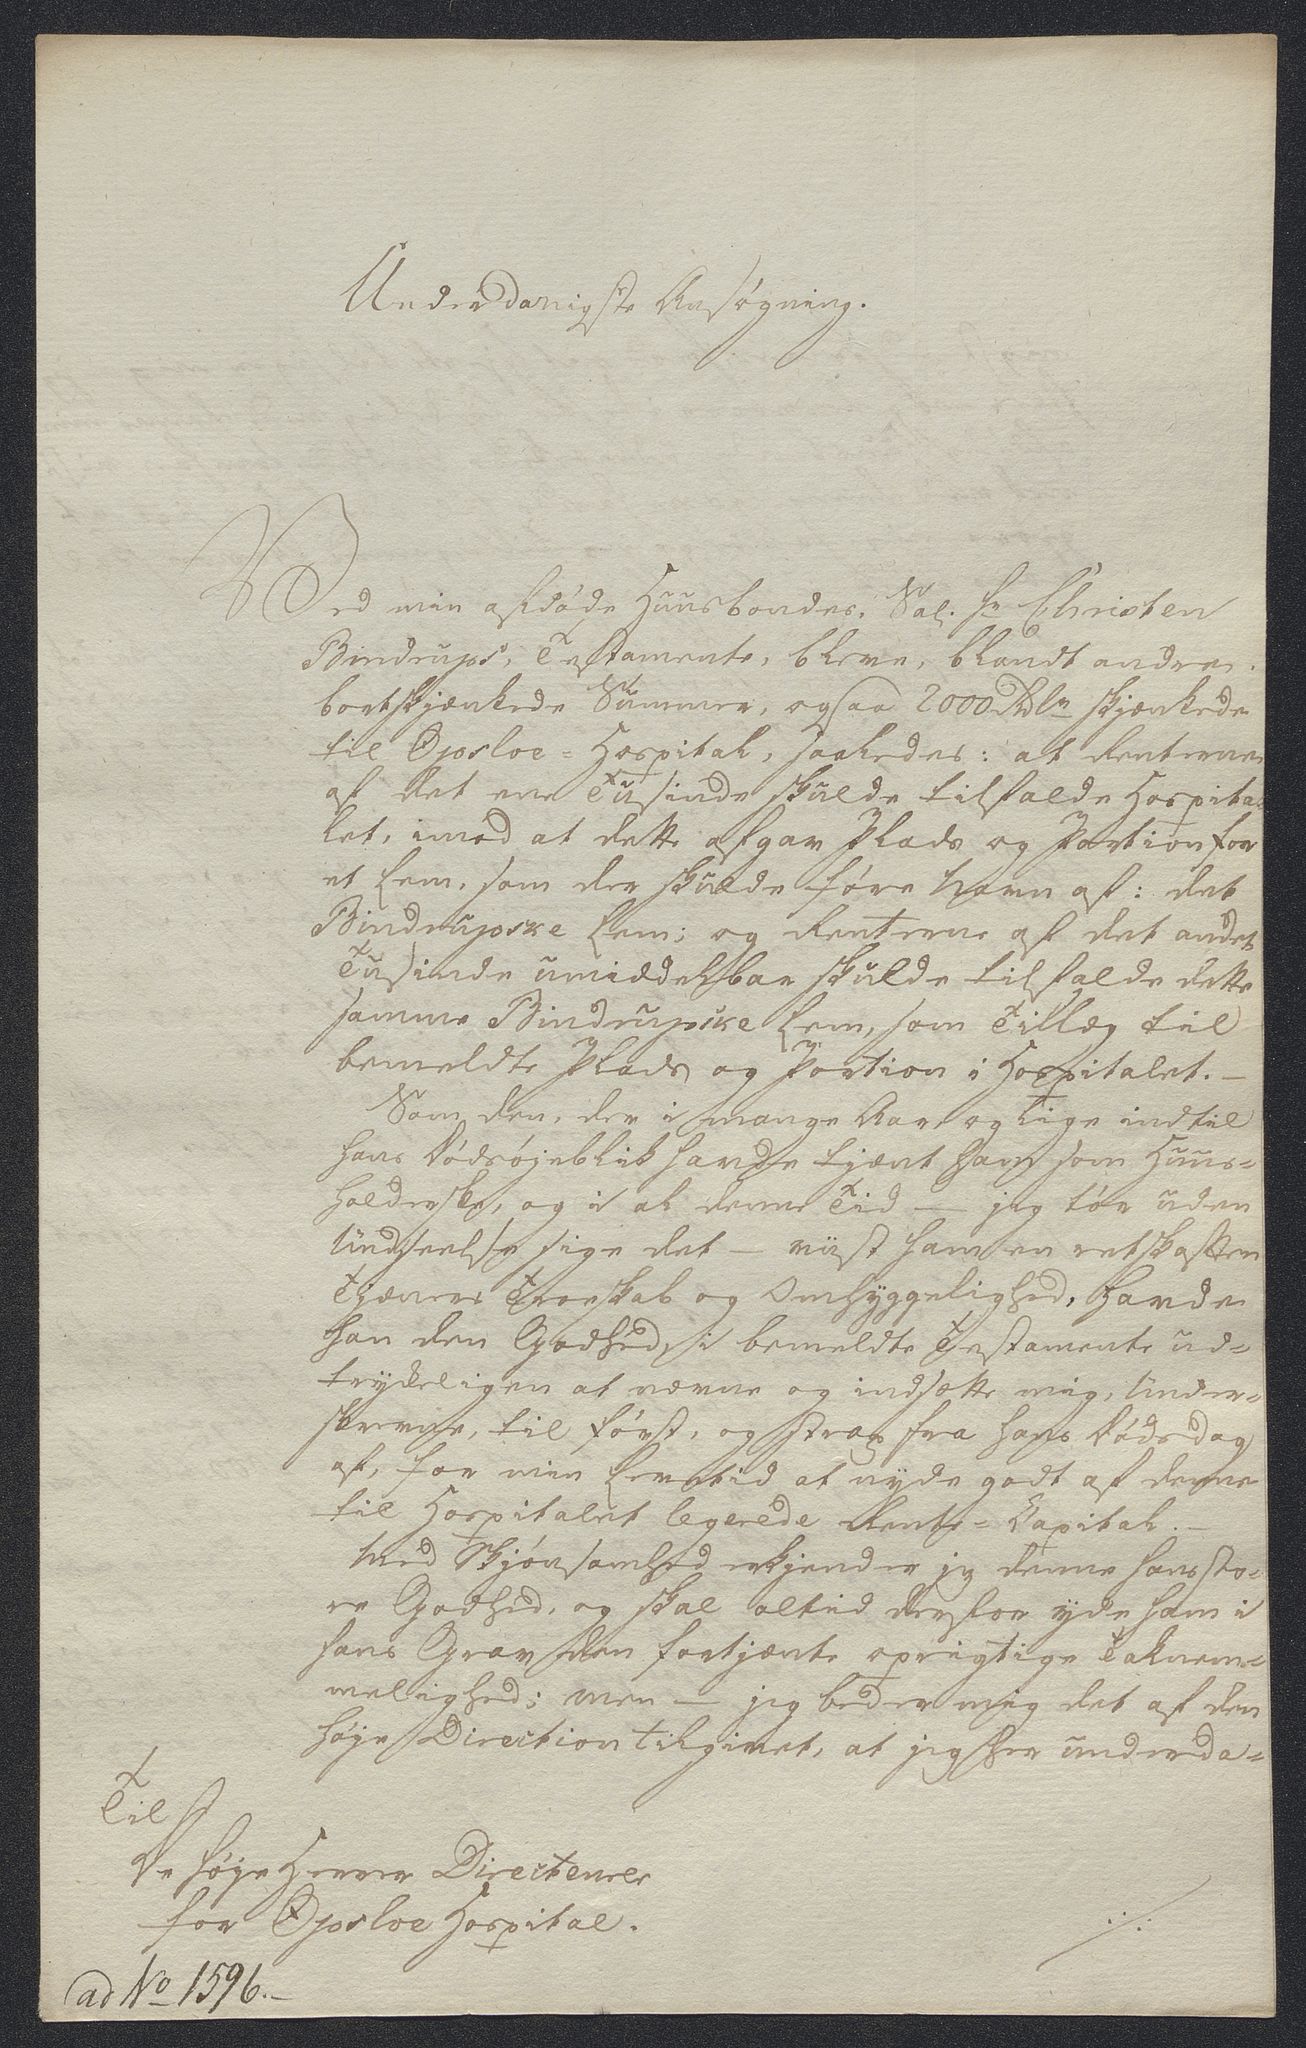 Underdanigste Ansøgning.
Ved min afdøde Huusbondes, Sal. Hr Christen
Bindrups, Testamente, bleve, blandt andre
bortskjænkede Summer, ogsaa 2000 Rdlr skjænkede
til Opsloe-Hospital, saaledes: at Renterne
af det ene Tusinde skulde tilfalde Hospita-
let, imod at dette afgav Plads og Portion for
et Lem, som der skulde føre Navn af: det
Bindrupske Lem; og Renterne af det andet
Tusinde umiddelbar skulde tilfalde dette
samme Bindrupske Lem, som Tillæg til
bemeldte Plads og Portion i Hospitalet. —
Som den, der i mange Aar og lige indtil
hans Dødsøjeblik havde tjænt ham som Huus-
holderske, og i al denne Tid — jeg tør uden
Undseelse sige det — viist ham en retskaffen
Tjæners Troeskab og Omhyggelighed, havde
han den Godhed, i bemeldte Testamente ud-
trykkeligen at nævne og indsætte mig, Under-
skrevne, til først, og strax fra hans Dødsdag
af, for min Levetid at nyde godt af denne
til Hospitalet legerede Rente-Capital. —
Med Skjønsomhed erkjender jeg denne hans sto-
re Godhed, og skal altid derfor yde ham i
hans Grav den fortjænte oprigtige Taknem-
melighed; men — jeg beder mig det af den
høje Direction tilgivet, at jeg her underda-
Til
De høje Herrer Directeurer
for Opsloe Hospital.
ad No 1596. —